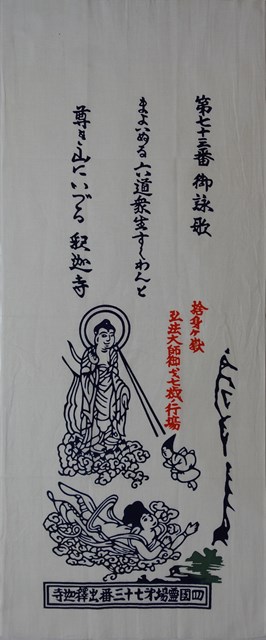 第七十三番 御詠歌
まよいぬる 六道衆生すくわんと
尊き山にいづる 釈迦寺
捨身ヶ嶽
弘法大師御年七歳ノ行場
四国霊場第七十三番出釋迦寺